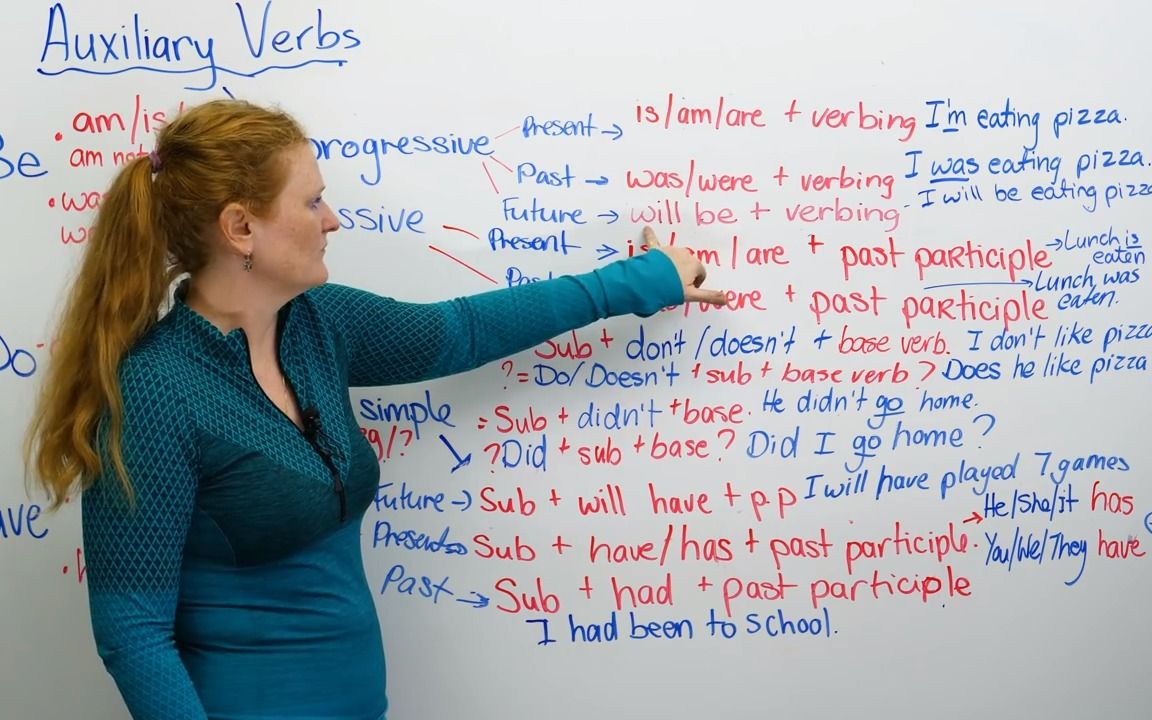 Auxiliary Verbs
am/is
am not
progressive
Present → is/am/are + verbing I'm eating pizza.
Past → was/were + verbing I was eating pizza.
Future → will be + verbing - I will be eating
Present → am/are + past participle → Lunch is eaten
+ past participle → Lunch was eaten.
Sub + don't/doesn't + base verb. I don't like
? = Do/Doesn't + sub + base verb? Does he like pizza
simple = Sub + didn't + base. He didn't go home.
? Did + sub + base? Did I go home?
Future → Sub + will have + p.p I will have played 7 games
Present → Sub + have/has + past participle. → He/She/it has
You/We/They have
Past → Sub + had + past participle
I had been to school.